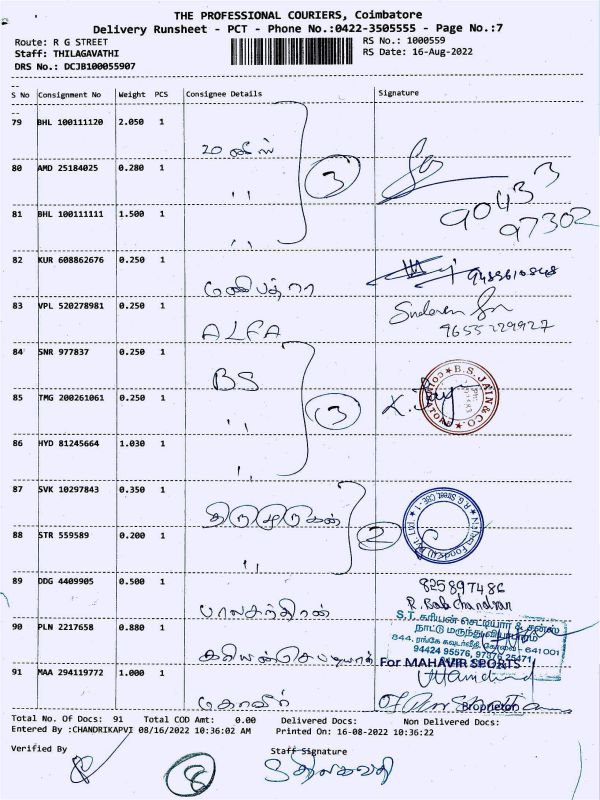 THE PROFESSIONAL COURIERS, Coimbatore
Delivery Runsheet - PCT - Phone No.:0422-3505555 - Page No.:7
Route: R G STREET
RS No.: 1000559
Staff: THILAGAVATHI
RS Date: 16-Aug-2022
DRS No.: DCJB100055907
S No Consignment No Weight PCS Consignee Details Signature
79 BHL 100111120 2.050 1
80 AMD 25184025 0.280 1 ,, 3
90433
97302
81 BHL 100111111 1.500 1 ,,
82 KUR 608862676 0.250 1
83 VPL 520278981 0.250 1 ALFA
9655229927
84 SNR 977837 0.250 1 BS
85 TMG 200261061 0.250 1 ,, 3
B.S.JAIN&CO.
86 HYD 81245664 1.030 1 ,,
87 SVK 10297843 0.350 1 திருமுருகன்
88 STR 559589 0.200 1 ,, 2
89 DDG 4409905 0.500 1 பாலசந்திரன்
825897486
S.T. கரியன் செட்டியார் & சன்ஸ்
நாட்டு மருந்து வியாபாரம்
90 PLN 2217658 0.880 1
844, ரங்கே கவுடர்வீதி, கோவை - 641001
94424 95576, 97876 25471
For MAHAVIR SPORTS
91 MAA 294119772 1.000 1
Proprietor
Total No. Of Docs: 91 Total COD Amt: 0.00 Delivered Docs: Non Delivered Docs:
Entered By :CHANDRIKAPVI 08/16/2022 10:36:02 AM Printed On: 16-08-2022 10:36:22
Verified By
Staff Signature
8
திலகவதி